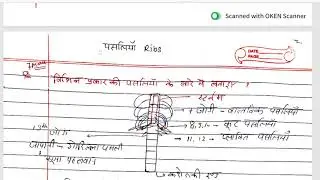 Scanned with OKEN Scanner
पसलियाँ Ribs
DATE
PAGE
विभिन्न प्रकार की पसलियों के बारे में बताएं ?
स्टर्नम
7 जोड़ी - वास्तविक पसलियाँ
8,9,10 - कूट पसलियाँ
11, 12 - प्लावित पसलियाँ
जोड़ी
गोरिल्ला पसली
कशेरुकी दण्ड